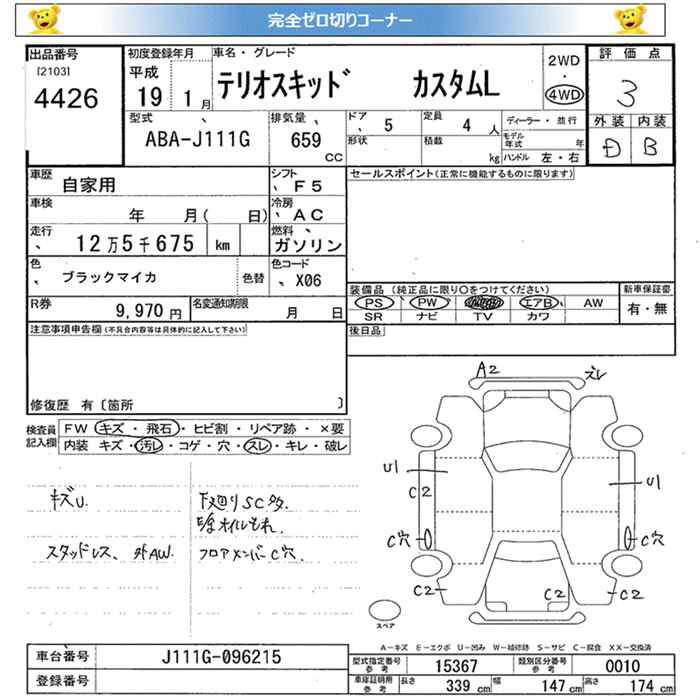 完全ゼロ切りコーナー
出品番号
[2103]
4426
初度登録年月
平成
19 1月
車名・グレード
テリオスキッド カスタムL
2WD
・
4WD
評価点
3
外装 内装
D B
型式
ABA-J111G
排気量
659
CC
ドア
5
定員
4人
形状
積載
kg
ディーラー・並行
モデル年式 年
ハンドル 左・右
車歴
自家用
シフト
F5
車検
年 月( 日)
冷房
AC
走行
12万5千675 km
燃料
ガソリン
色
ブラックマイカ
色替
色コード
X06
R券
9,970円
名変通知期限
月 日
セールスポイント(正常に機能するものに限ります)
装備品(純正品に限り○をつけてください)
PS PW エアB AW
SR ナビ TV カワ
新車保証書
有・無
後日品
注意事項申告欄(不具合内容等は具体的に記入して下さい)
修復歴 有〔箇所 〕
検査員記入欄
FW キズ・飛石・ヒビ割・リペア跡・×要
内装 キズ・汚レ・コゲ・穴・スレ・キレ・破レ
キズU.
スタッドレス、外AW.
下廻りSC多
オイルもれ.
フロアメンバーC穴
A2
ズレ
U1
C2
U1
C穴
C穴
C2
C2
スペア
A-キズ E-エクボ U-凹み W-補修跡 S-サビ C-腐食 XX-交換済
車台番号
J111G-096215
登録番号
型式指定番号
参考
15367
類別区分番号
参考
0010
車庫証明用
参考
長さ 339 cm 幅 147 cm 高さ 174 cm